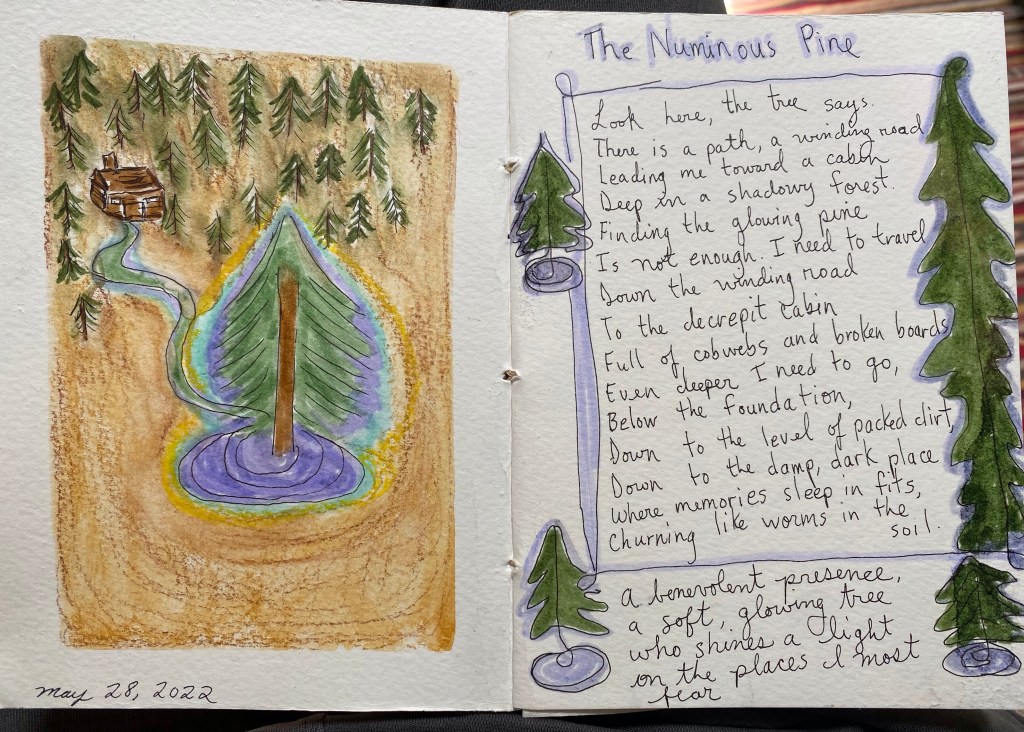 The Numinous Pine
Look here, the tree says.
There is a path, a winding road
Leading me toward a cabin
Deep in a shadowy forest.
Finding the glowing pine
Is not enough. I need to travel
Down the winding road
To the decrepit cabin
Full of cobwebs and broken boards
Even deeper I need to go,
Below the foundation,
Down to the level of packed dirt,
Down to the damp, dark place
where memories sleep in fits,
Churning like worms in the
soil.
a benevolent presence,
a soft, glowing tree
who shines a light
on the places I most
fear
may 28, 2022